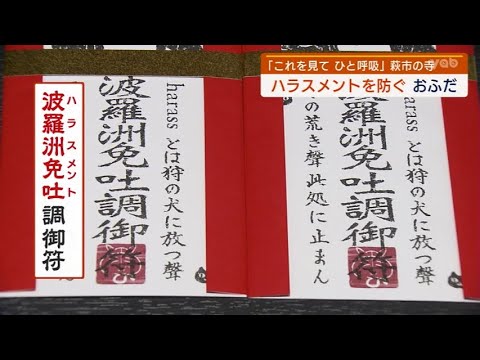 「これを見て ひと呼吸」萩市の寺
yab
ハラスメントを防ぐ おふだ
ハラスメント
波羅洲免吐調御符
harass とは狩の犬に放つ聲
波羅洲免吐調御符
harass とは狩の犬に放つ聲
波羅洲免吐調御符
の荒き聲 此処に止まん